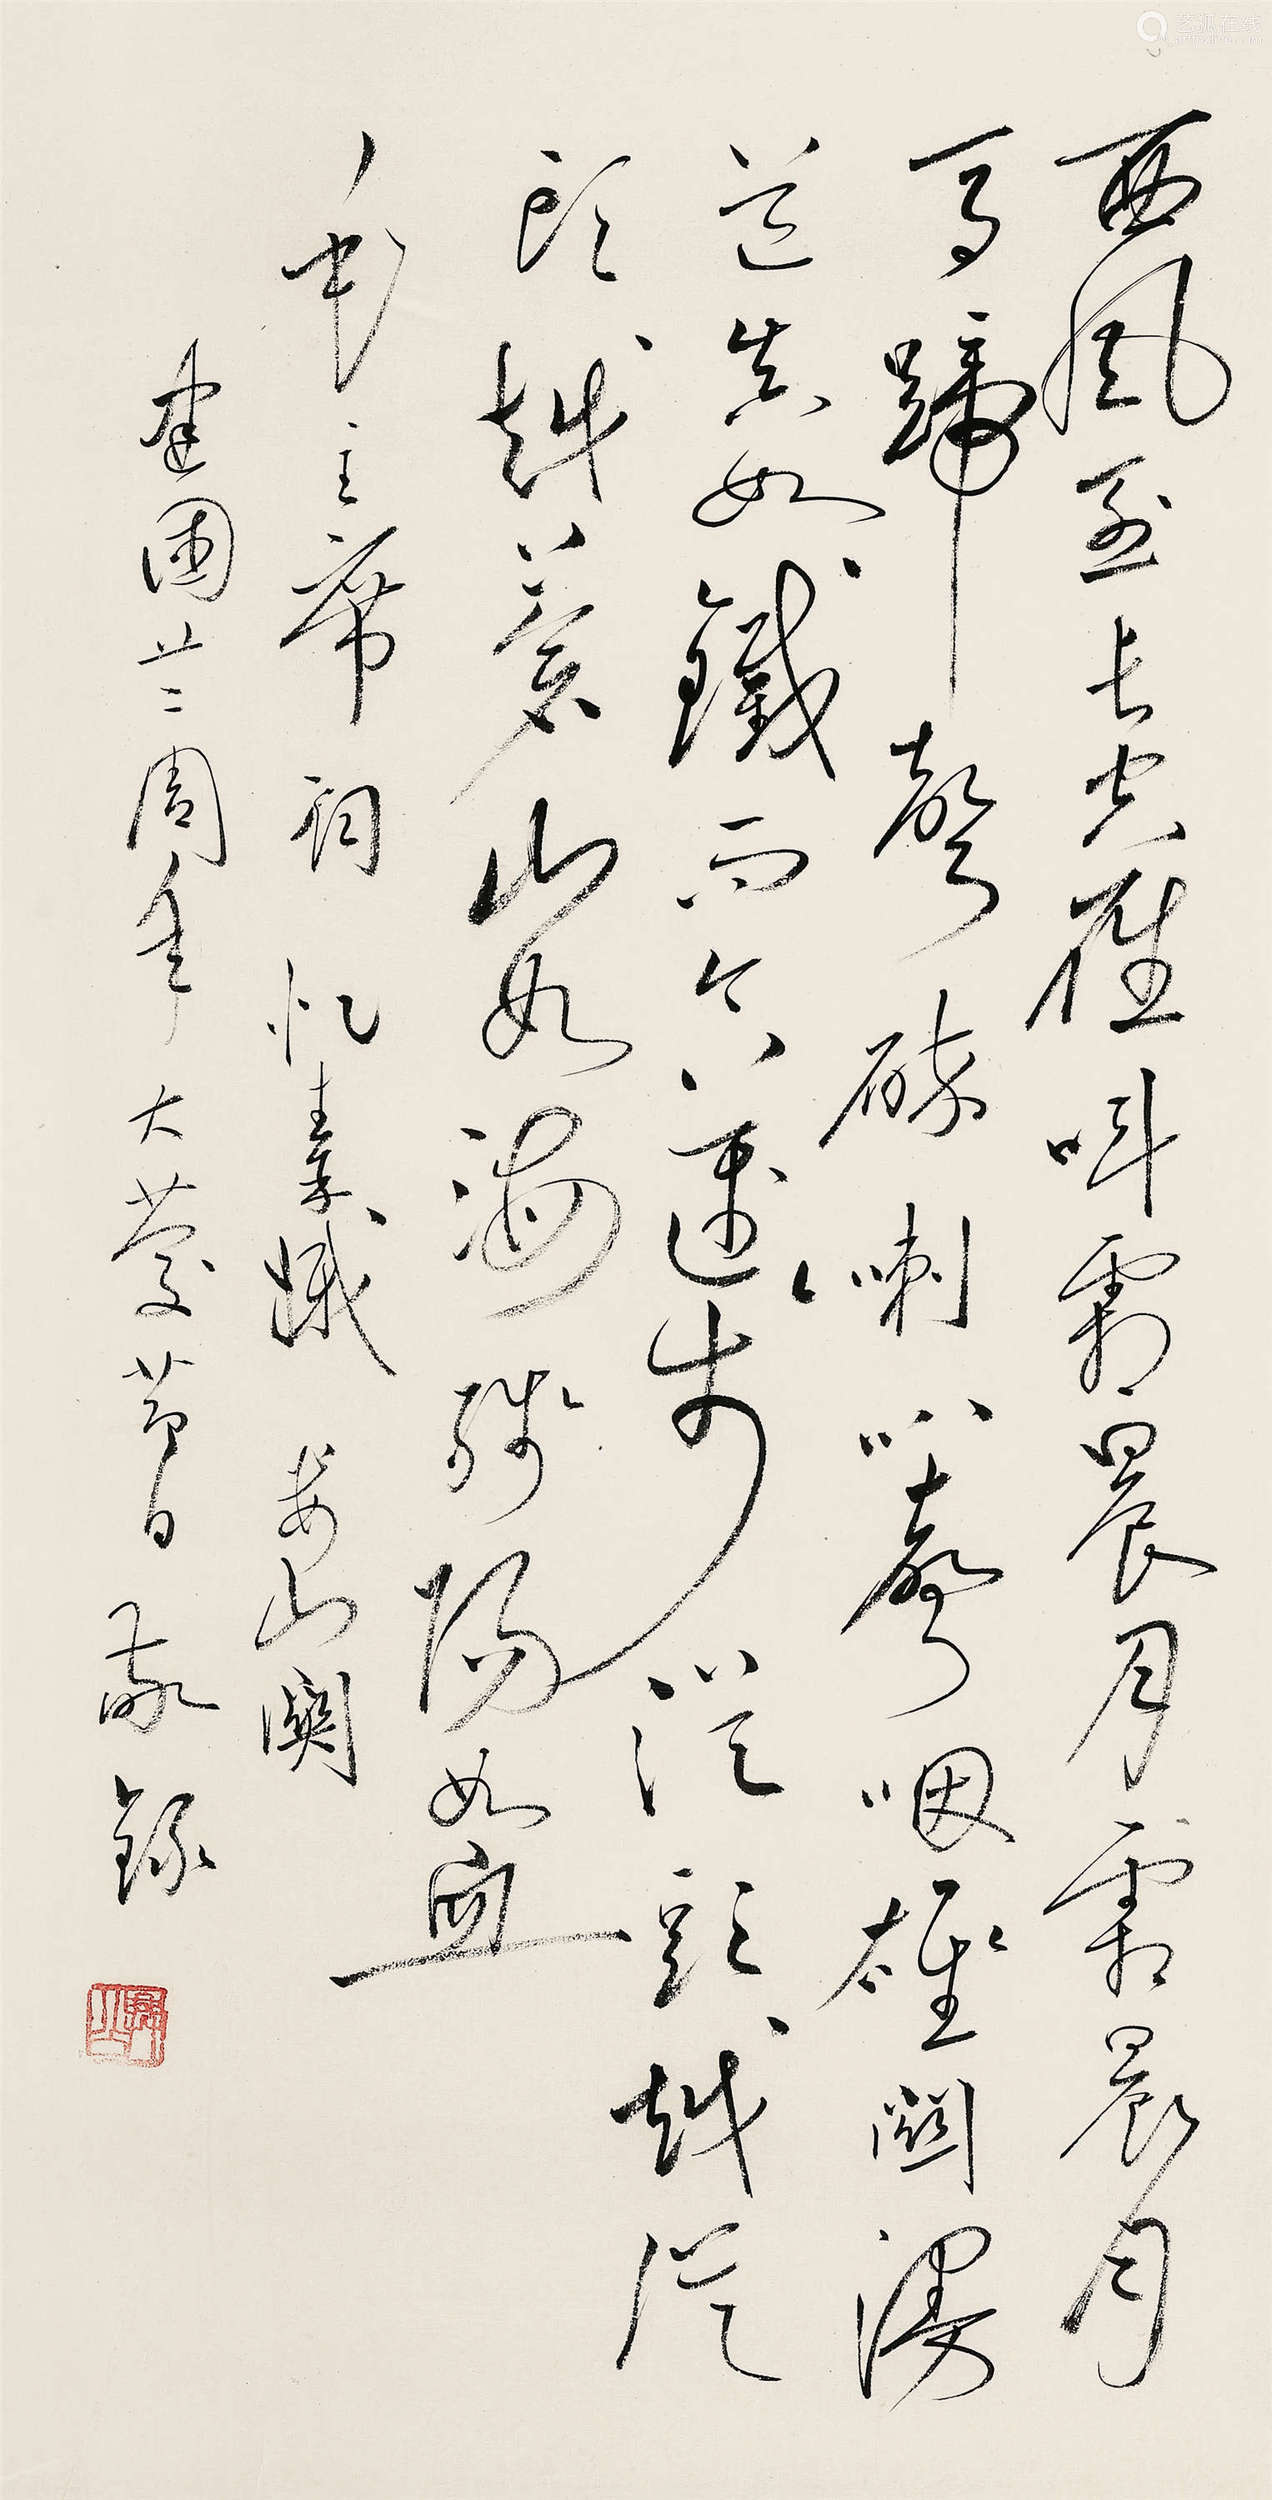 西風烈長空雁叫霜晨月霜晨月
馬蹄聲碎喇叭聲咽雄關漫
道真如鐵而今邁步從頭越從
頭越蒼山如海殘陽如血
毛主席詞 忆秦娥 娄山關
建國廿二周年大慶節日敬錄
艺狐在线